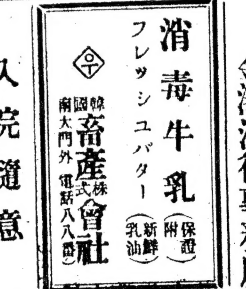 消毒牛乳
(保證附)
フレッシユバター
(新鮮乳油)
우
韓國畜產株式會社
南大門外 電話八八番
入院隨意